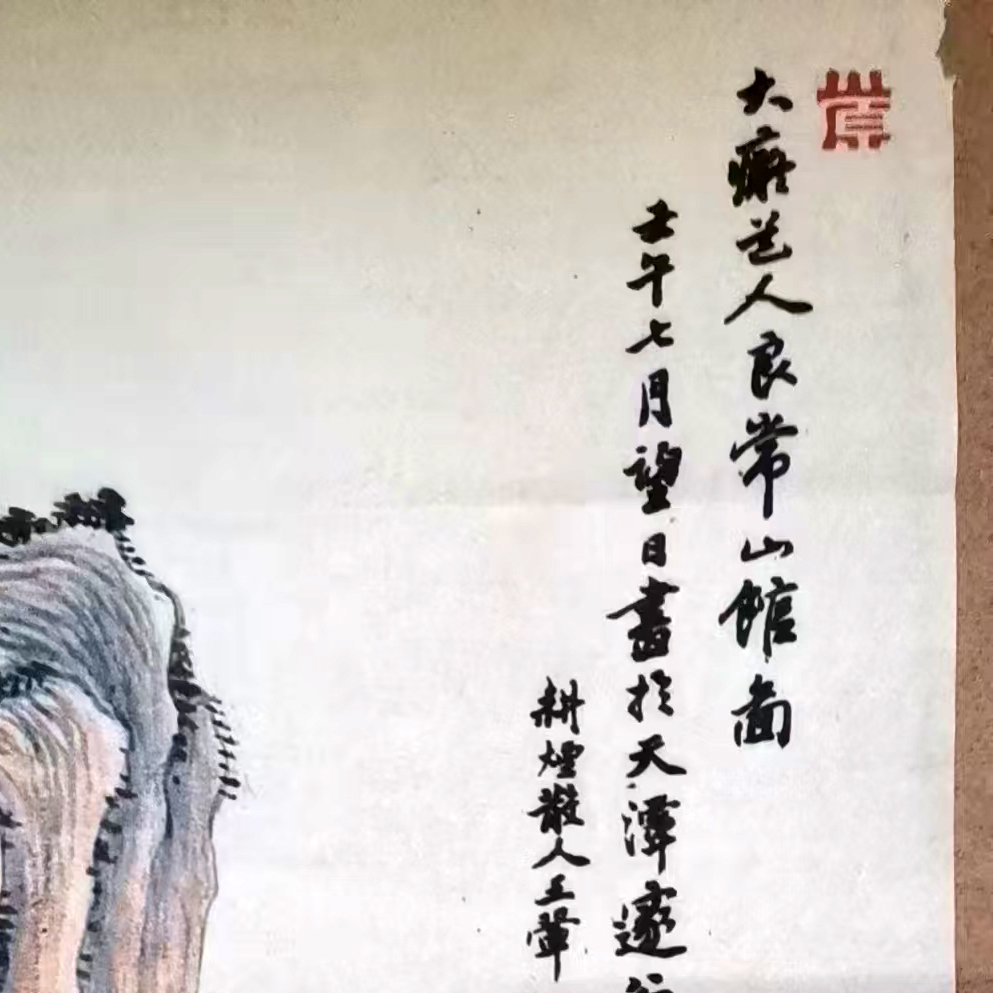 大癡道人良常山館圖
壬午七月望日畫於天潭邃
耕煙散人王翬